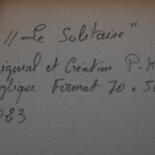 "Le Solitaire"
iginal et Création P. H
ylique Format 70 x 5
023